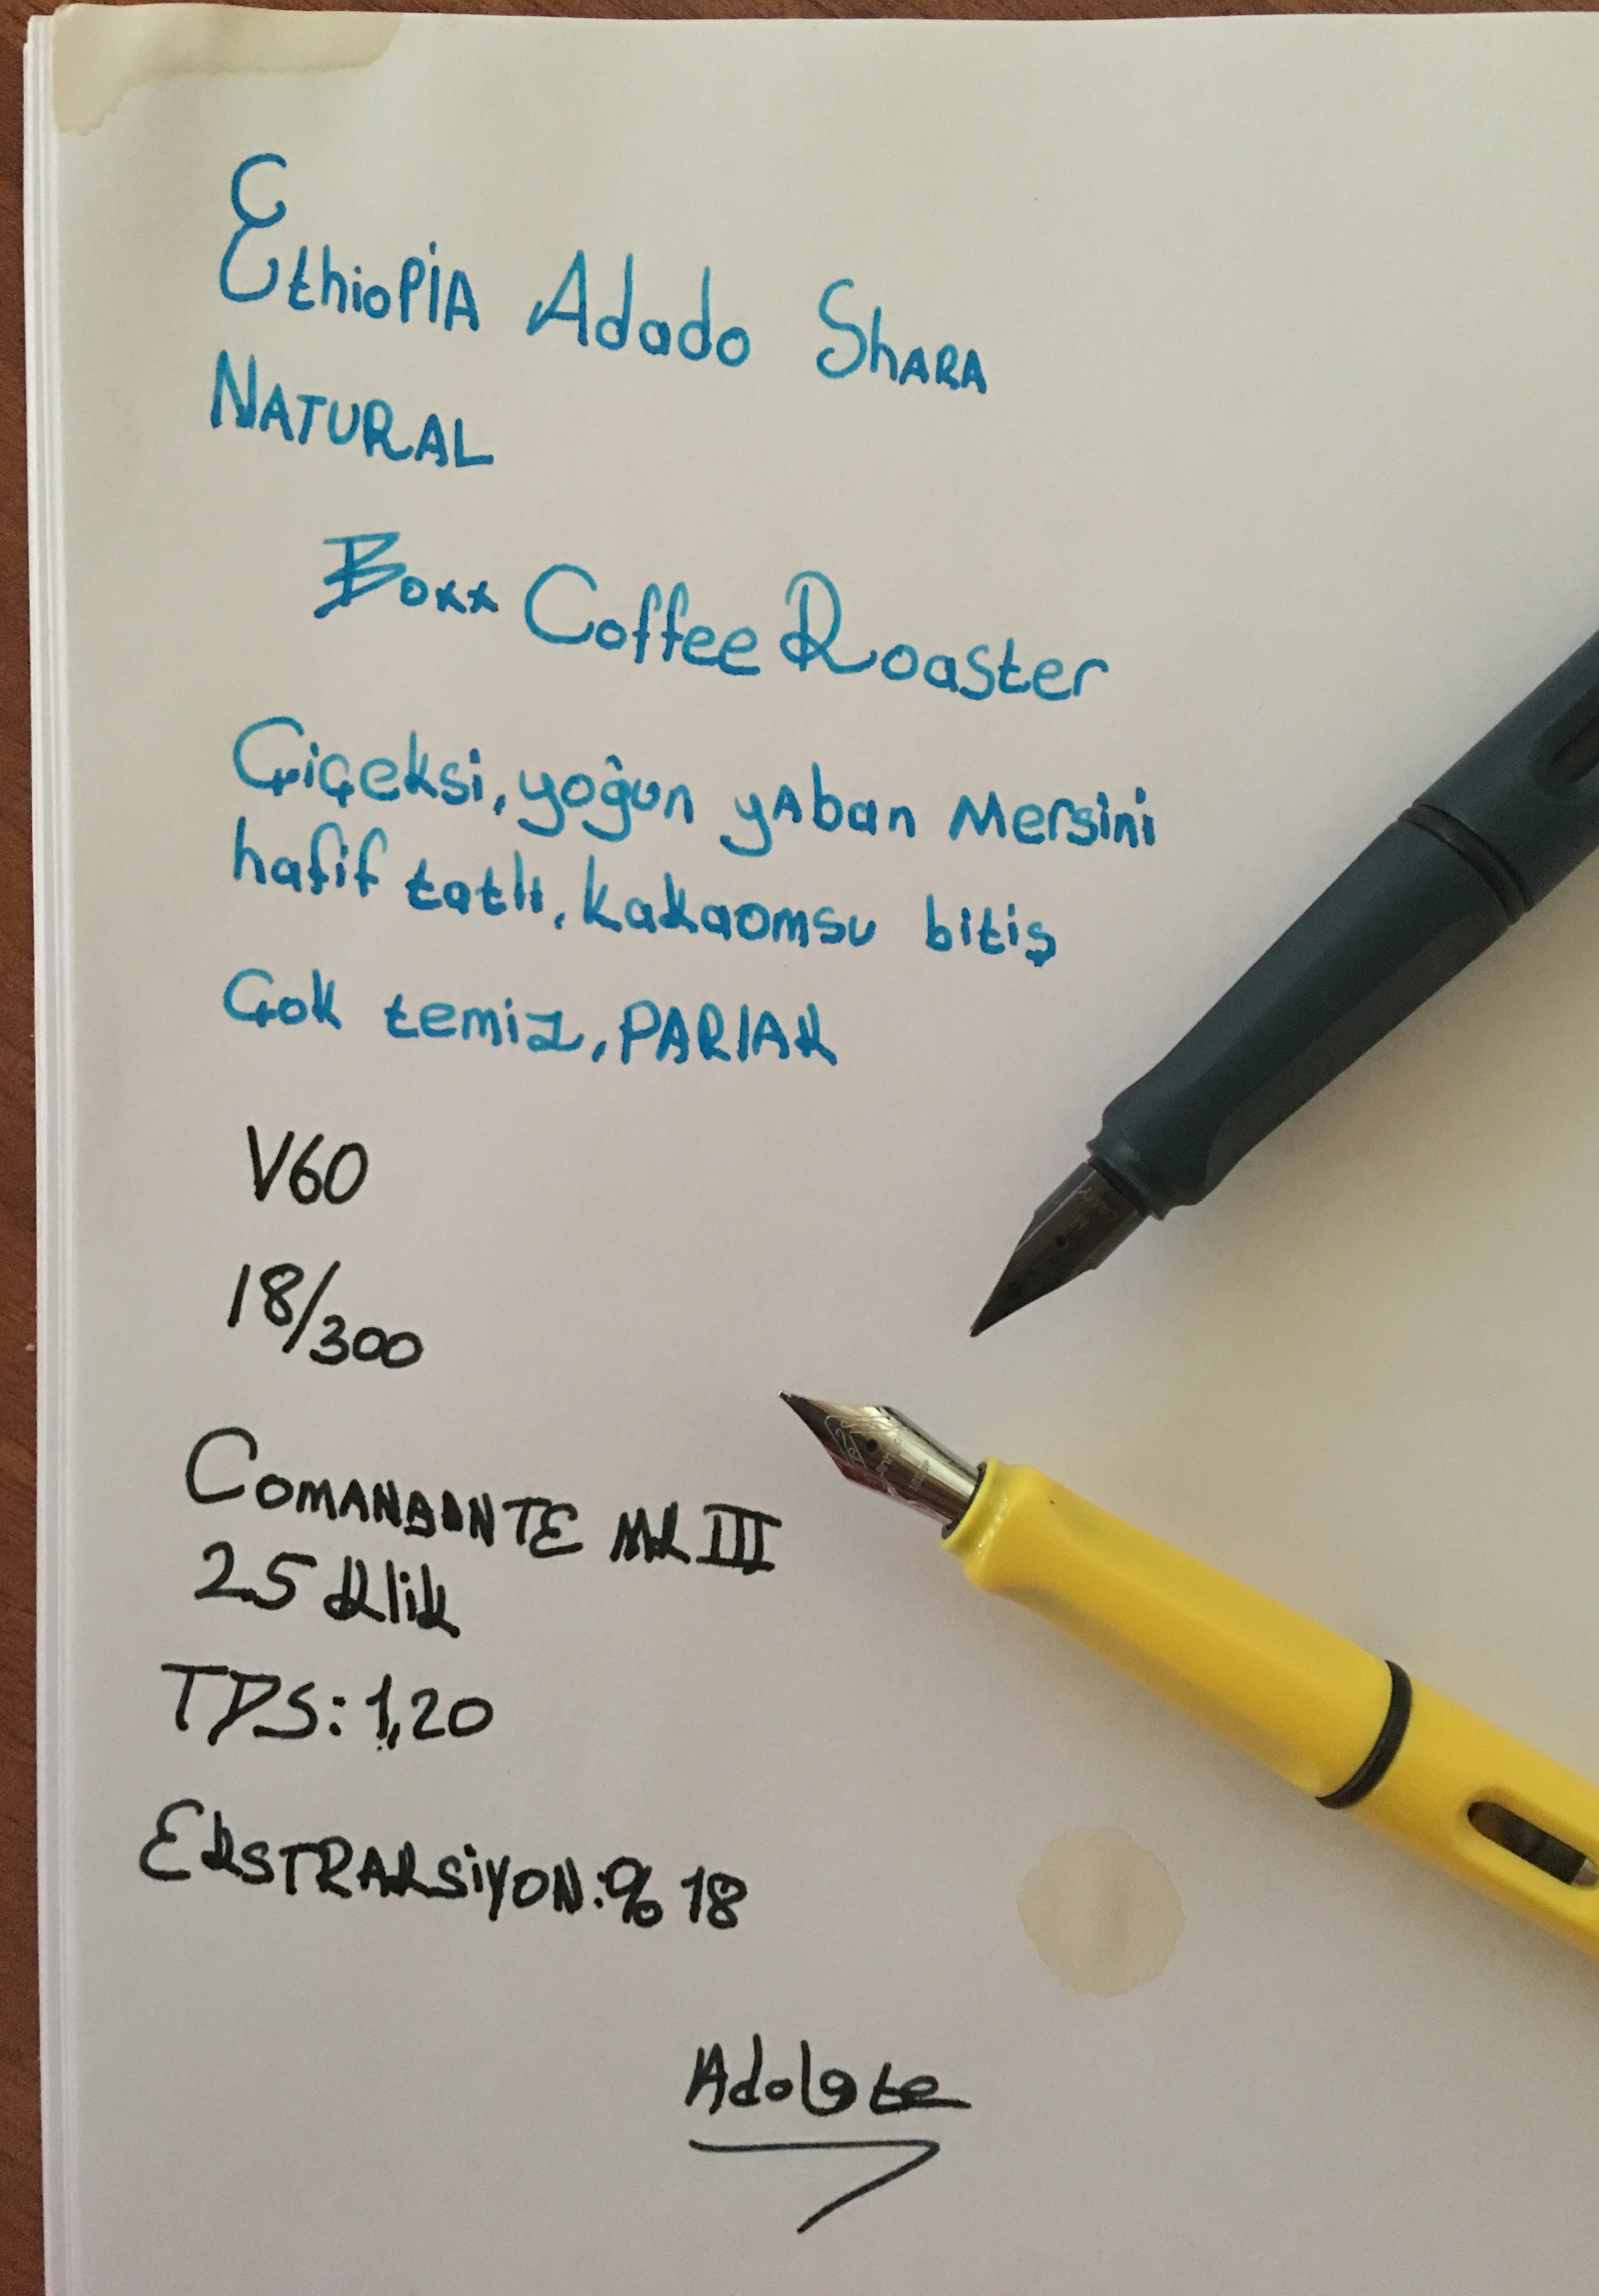 Ethiopia Adado Shara
Natural
Boxx Coffee Roaster
Çiçeksi, yoğun yaban Mersini
hafif tatlı, kakaomsu bitiş
Çok temiz, PARlAK
V60
18/300
COMANDANTE MK III
25 klik
TDS: 1,20
EKSTRAKSiYON: % 18